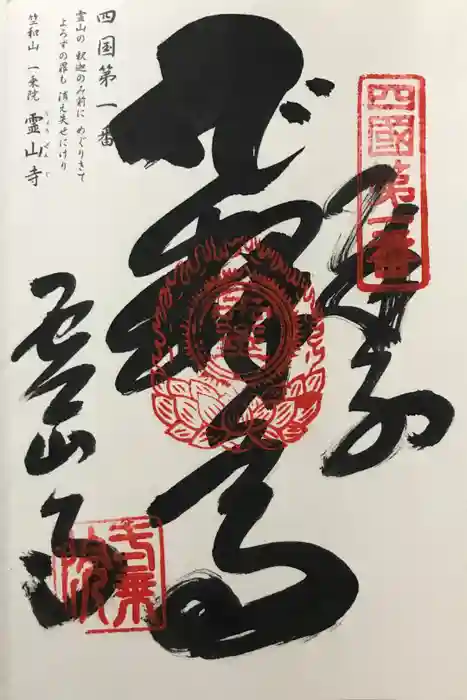 四国第一番
霊山の 釈迦のみ前に めぐりきて
よろずの罪も 消え失せにけり
竺和山 一乗院 霊山寺
りょうぜんじ
四國第一番
奉納
霊山寺
一乗院